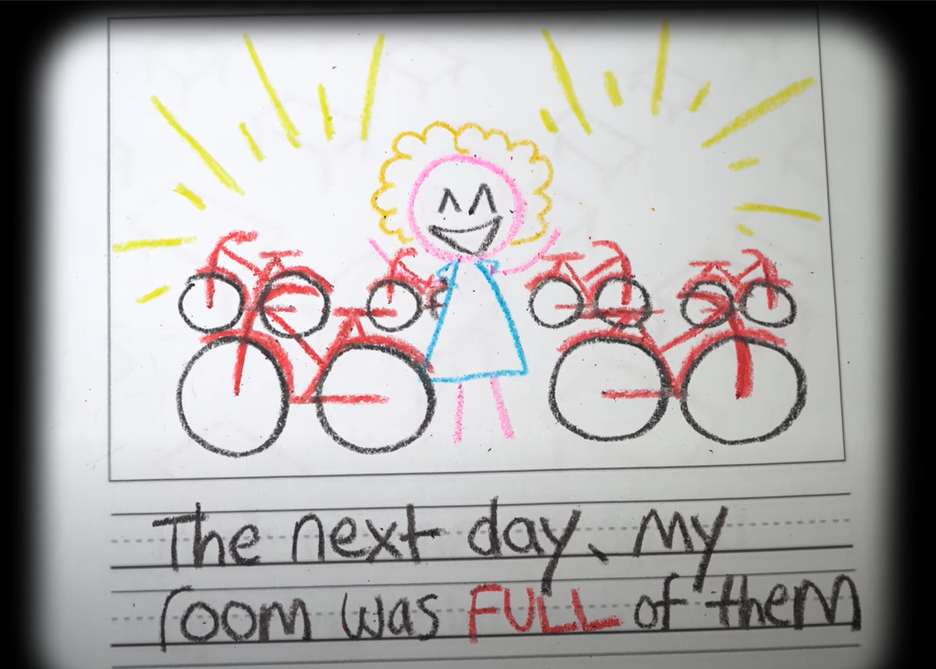 The next day, My
room was FULL of them